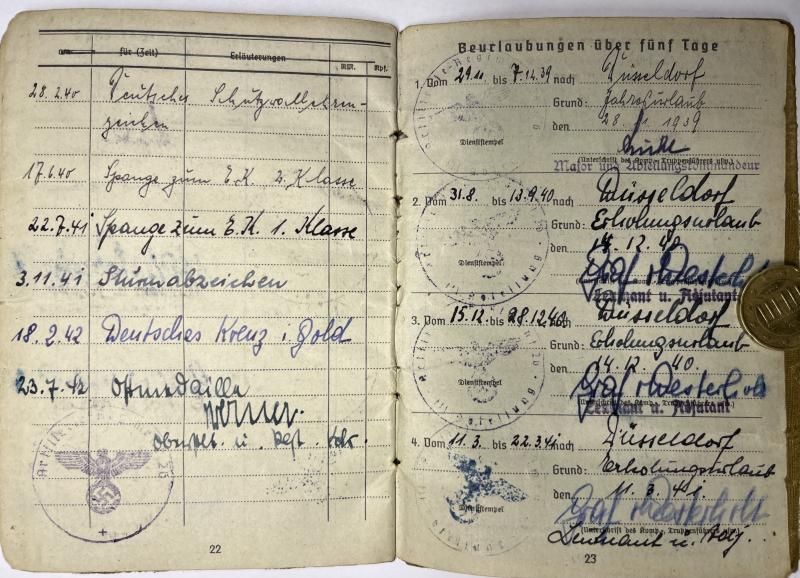 für (Zeit) Erläuterungen RM. Rpf.
28.2.40 Deutsches Schutzwallehren-
zeichen
17.6.40 Spange zum E.K. 2. Klasse
22.7.41 Spange zum E.K. 1. Klasse
3.11.41 Sturmabzeichen
18.2.42 Deutsches Kreuz i. Gold
23.7.42 Ostmedaille
22
Beurlaubungen über fünf Tage
1. Vom 29.11. bis 7.12.39 nach Düsseldorf
Grund: Jahresurlaub
den 28. 1939
Dienststempel
(Unterschrift des Komp.-, Truppenführers usw.)
Major und Abteilungskommandeur
2. Vom 31.8. bis 13.9.40 nach Düsseldorf
Grund: Erholungsurlaub
den 14.12.40
Dienststempel
Graf v Westerholt
Leutnant u. Adjutant
3. Vom 15.12. bis 28.12.40 nach Düsseldorf
Grund: Erholungsurlaub
den 14.12.40.
Dienststempel
Graf v Westerholt
(Unterschrift des Komp.-, Truppenführers usw.)
Leutnant u. Adjutant
4. Vom 11.3. bis 22.3.41 nach Düsseldorf
Grund: Erholungsurlaub
den 11.3.41.
Dienststempel
Graf v Westerholt
(Unterschrift des Komp.-, Truppenführers usw.)
Leutnant u. Adj.
23